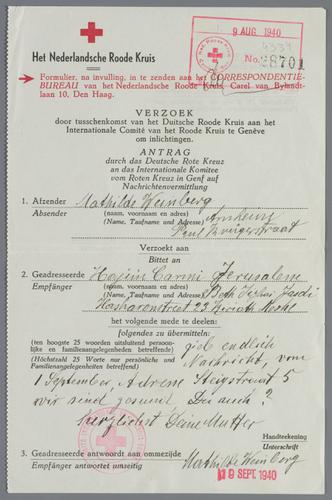 9 AUG. 1940
4339
No. 28701
Het Nederlandsche Roode Kruis
Formulier, na invulling, in te zenden aan het CORRESPONDENTIE-
BUREAU van het Nederlandsche Roode Kruis, Carel van Bylandt-
laan 10, Den Haag.
VERZOEK
door tusschenkomst van het Duitsche Roode Kruis aan het
Internationale Comité van het Roode Kruis te Genève
om inlichtingen.
ANTRAG
durch das Deutsche Rote Kreuz
an das Internationale Komitee
vom Roten Kreuz in Genf auf
Nachrichtenvermittlung
1. Afzender Mathilde Weinberg
Absender (naam, voornaam en adres) Arnhem
(Name, Taufname und Adresse)
Verzoekt aan
Bittet an
2. Geadresseerde Carmi Jerusalem
Empfänger (naam, voornaam en adres) Beth
(Name, Taufname und Adresse)
23
het volgende mede te deelen:
folgendes zu übermitteln:
(ten hoogste 25 woorden uitsluitend persoon-
lijke en familiaangelegenheden betreffende)
(Höchstzahl 25 Worte nur persönliche und
Familienangelegenheiten betreffend)
gieb endlich
Nachricht, vom
1 September, Adresse Steijnstraat 5
wir sind gesund. Du auch?
herzlichst Deine Mutter
Handteekening
Unterschrift
3. Geadresseerde antwoordt aan ommezijde
Empfänger antwortet umseitig
Mathilde Weinberg
9 SEPT. 1940